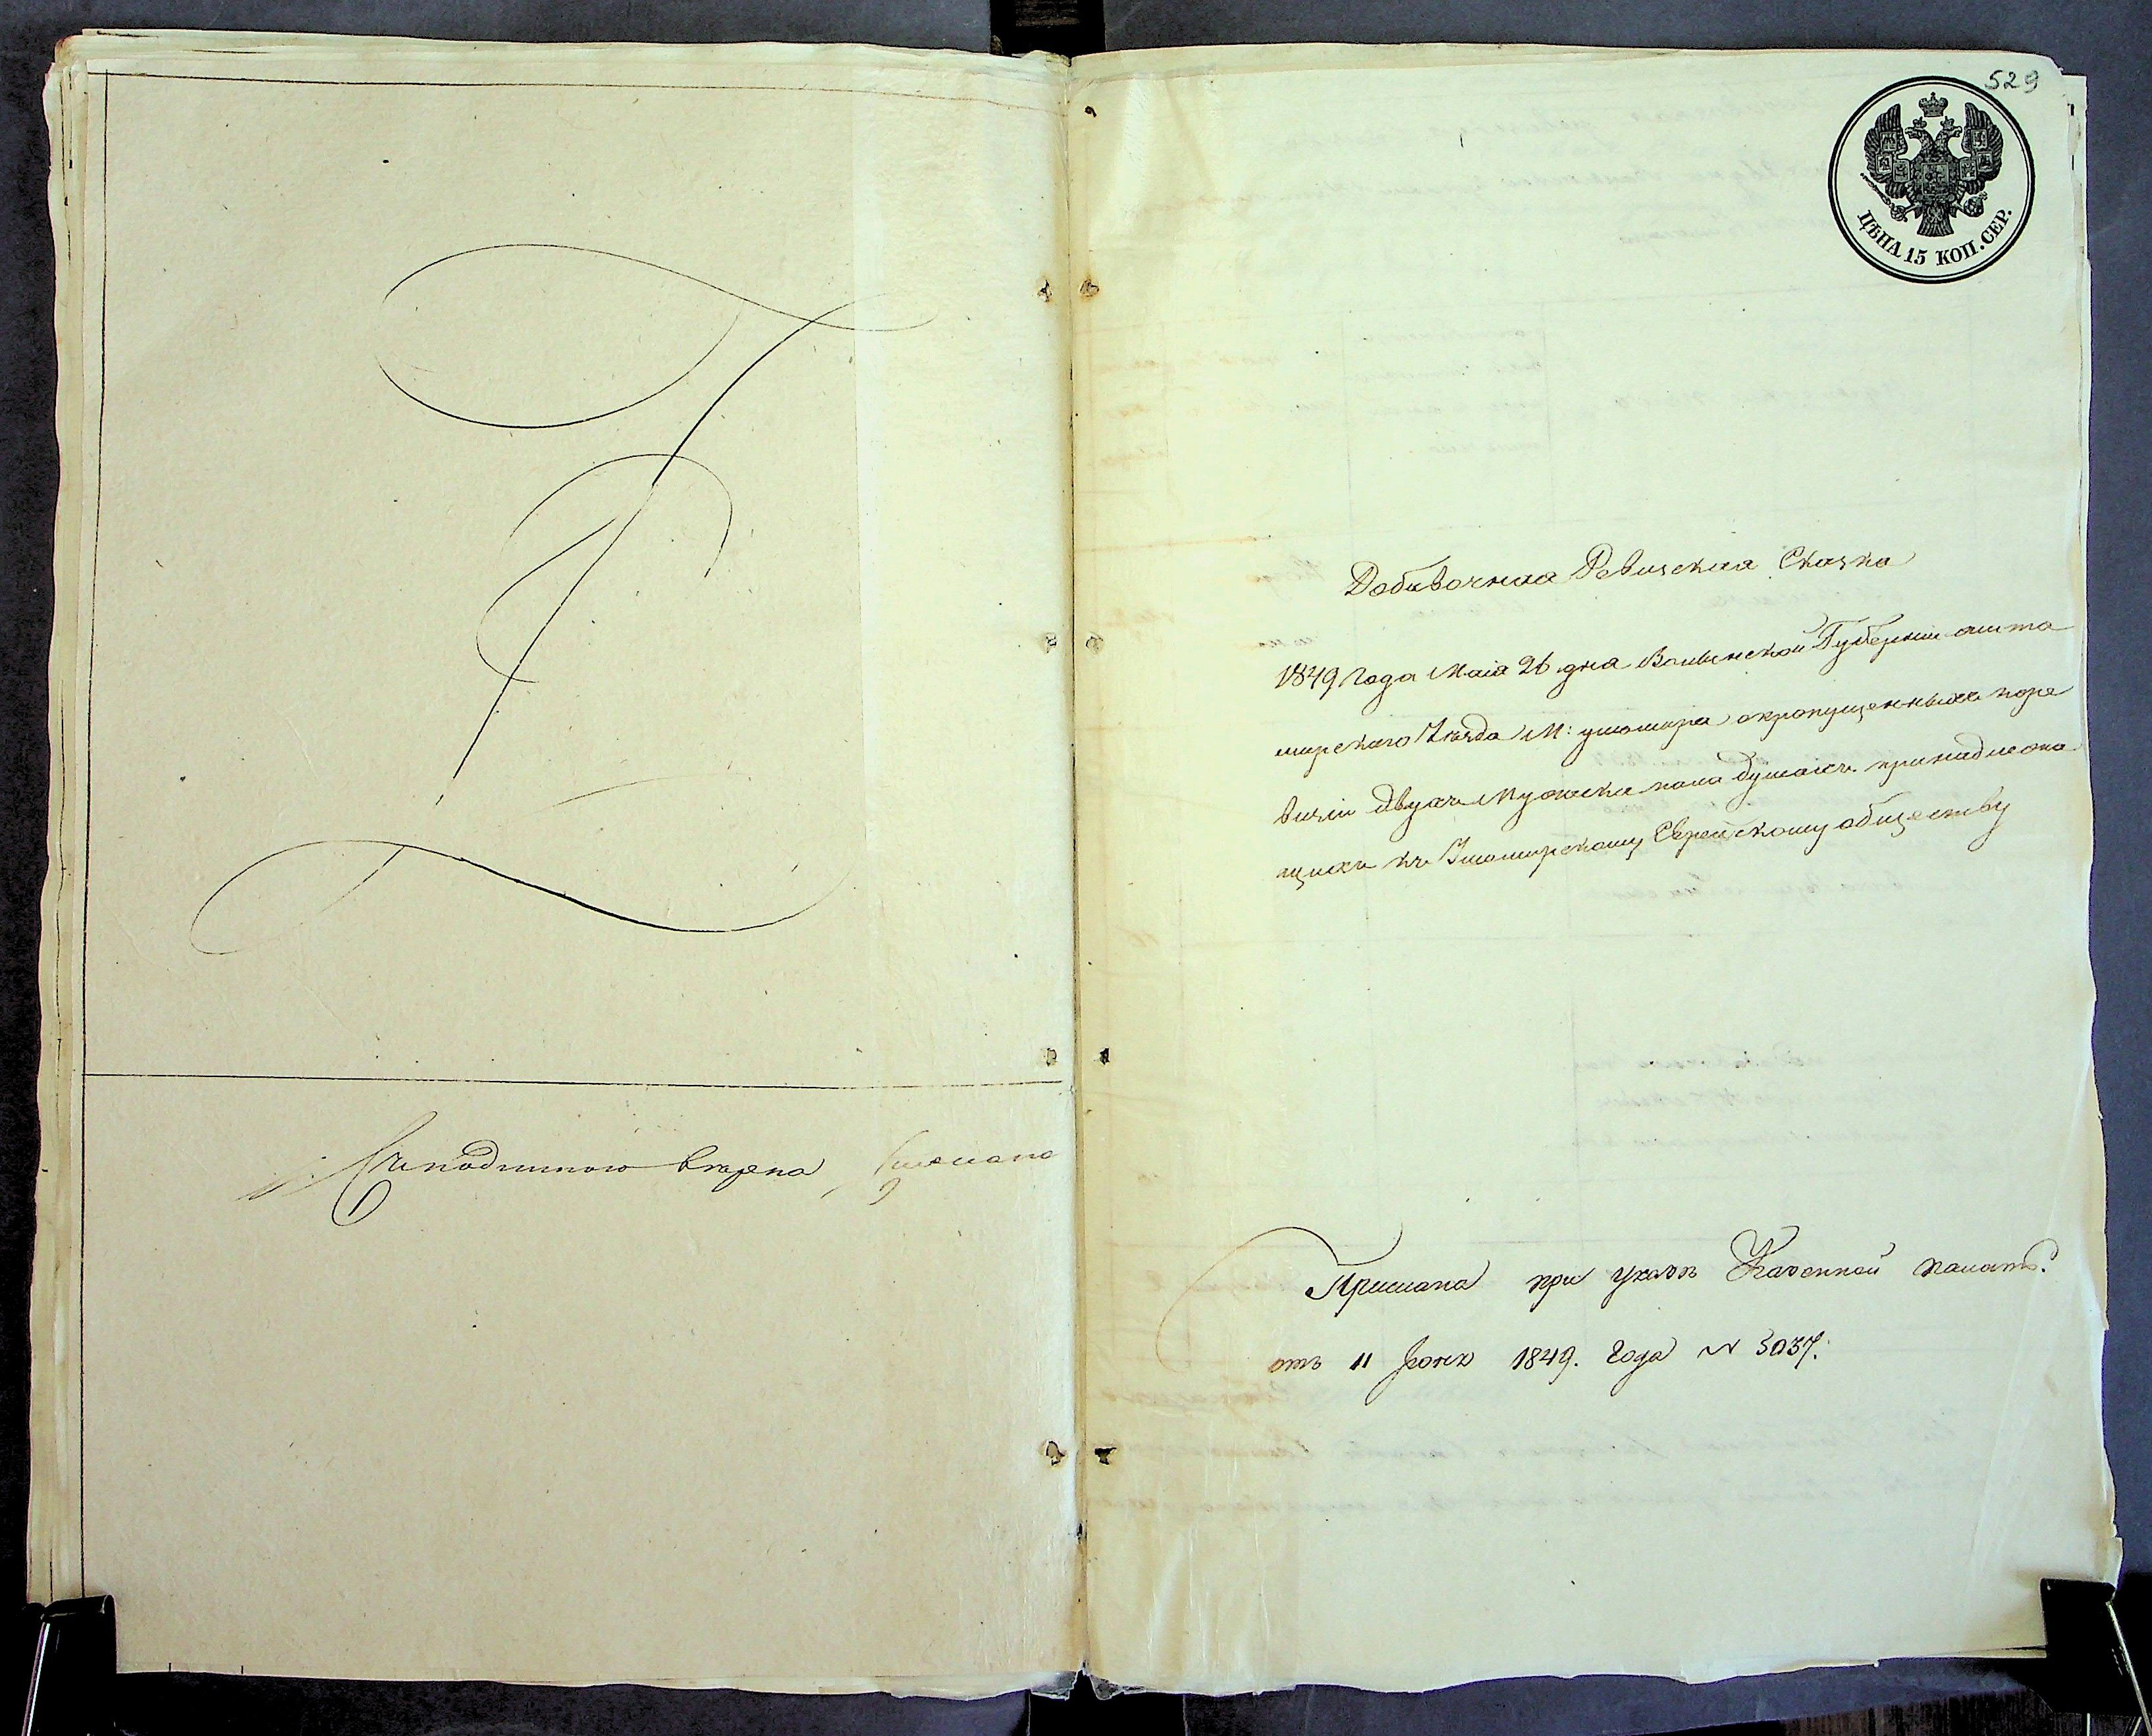 Съ подлинною вѣрна
529
ЦѢНА 15 КОП. СЕР.
Добавочная Ревизская Сказка
1849 Года Маія 26 дня Волынской Губерніи жито
мирскаго Уѣзда М: ушомира опропущенныхъ поре
визіи двухъ Мужеска пола душахъ принадлежа
щихъ къ Ушомирскому Еврейскому обществу
Прислана при указѣ Казенной палаты.
отъ 11 Іюня 1849. Года № 5037.